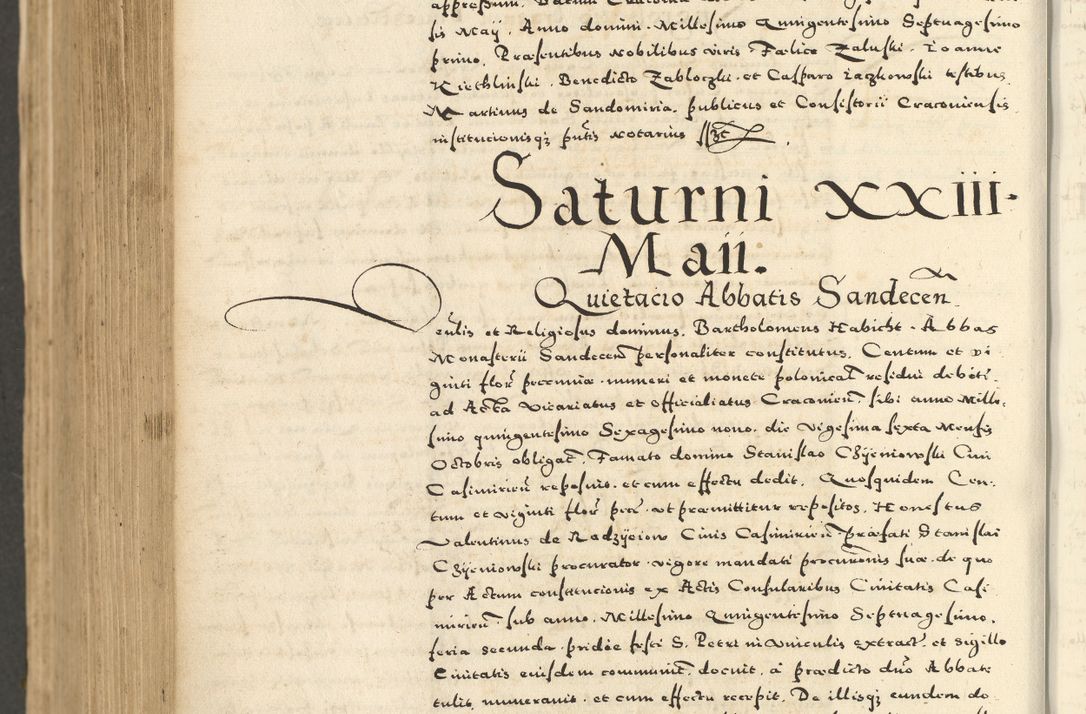 sis Maij. Anno domini Millesimo Quingentesimo Septuagesimo
primo. Præsentibus Nobilibus viris Fælice Zaluski. Ioanne
Kiethlinski. Benedicto Zabloczki. et Casparo Iaczkowski testibus
Martinus de Sandomiria, publicus et Consistorii Cracouiensis
institucionisqȝ pñtis Notarius
Saturni XXIII.
Maii.
Quietacio Abbatis Sandeceñ
Veñlis et Religiosus dominus. Bartholomeus Habicht. Abbas
Monasterii Sandeceñ personaliter constitutus, Centum et vi
ginti floř peccuniæ. numeri et monete polonicał residui debiti.
ad Acta vicariatus et officialiatus Cracouieñ sibi anno Mille.
simo quingentesimo Sexagesimo nono. die vigesima sexta Mensis
Octobris obligať, Famato domino Stanislao Chÿeniowski Ciui
Casimirieñ reposuit. et cum effectu dedit. Quosquidem Cen.
tum et viginti floř pecc. vt præmittitur repositos, Honestus
Valentinus de Radzÿeiow Ciuis Casimirieñ præfati Stanislai
Chÿeniowski procurator. vigore mandati procuronis suæ. de quo
per Actum constitucionis ex Actis Consularibus Ciuitatis Casi
mirieñ. sub anno. Millesimo Quingentesimo Septuagesimo.
feria secunda. pridie festi S. Petri in vinculis extract. et sigillo
Ciuitatis eiusdem communit. docuit, a prædicto dno Abbate
tulit, numerauit. et cum effectu recepit. De illisqȝ eundem do